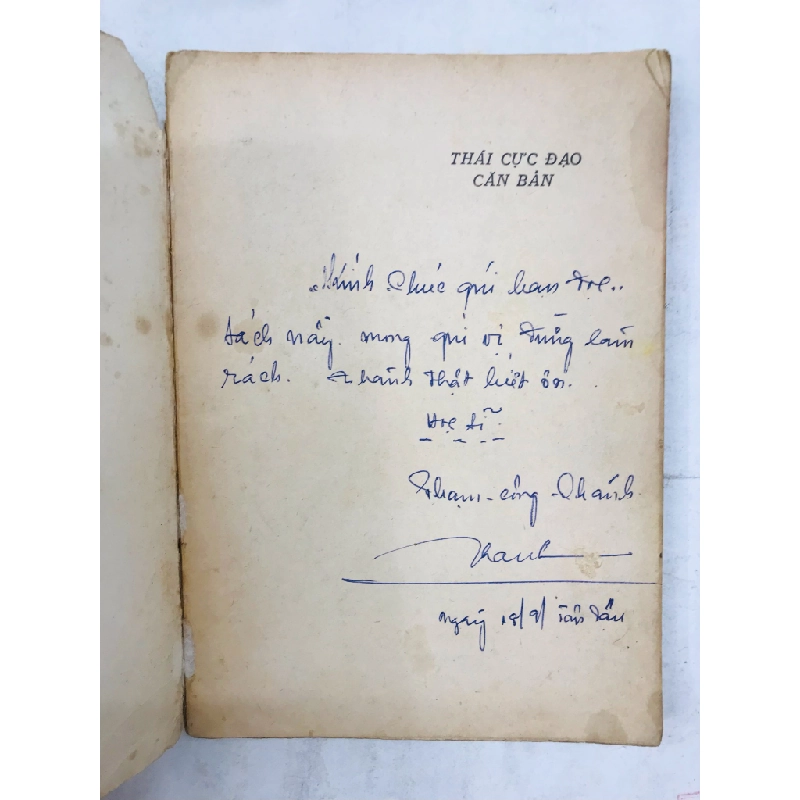 THÁI CỰC ĐẠO
CĂN BẢN
"Kính chúc quí bạn đọc..
sách nầy. mong quí vị đừng làm
rách. Thành thật biết ơn.
Học sĩ
Phạm-công-Chánh
Chanh
ngày 18/9/